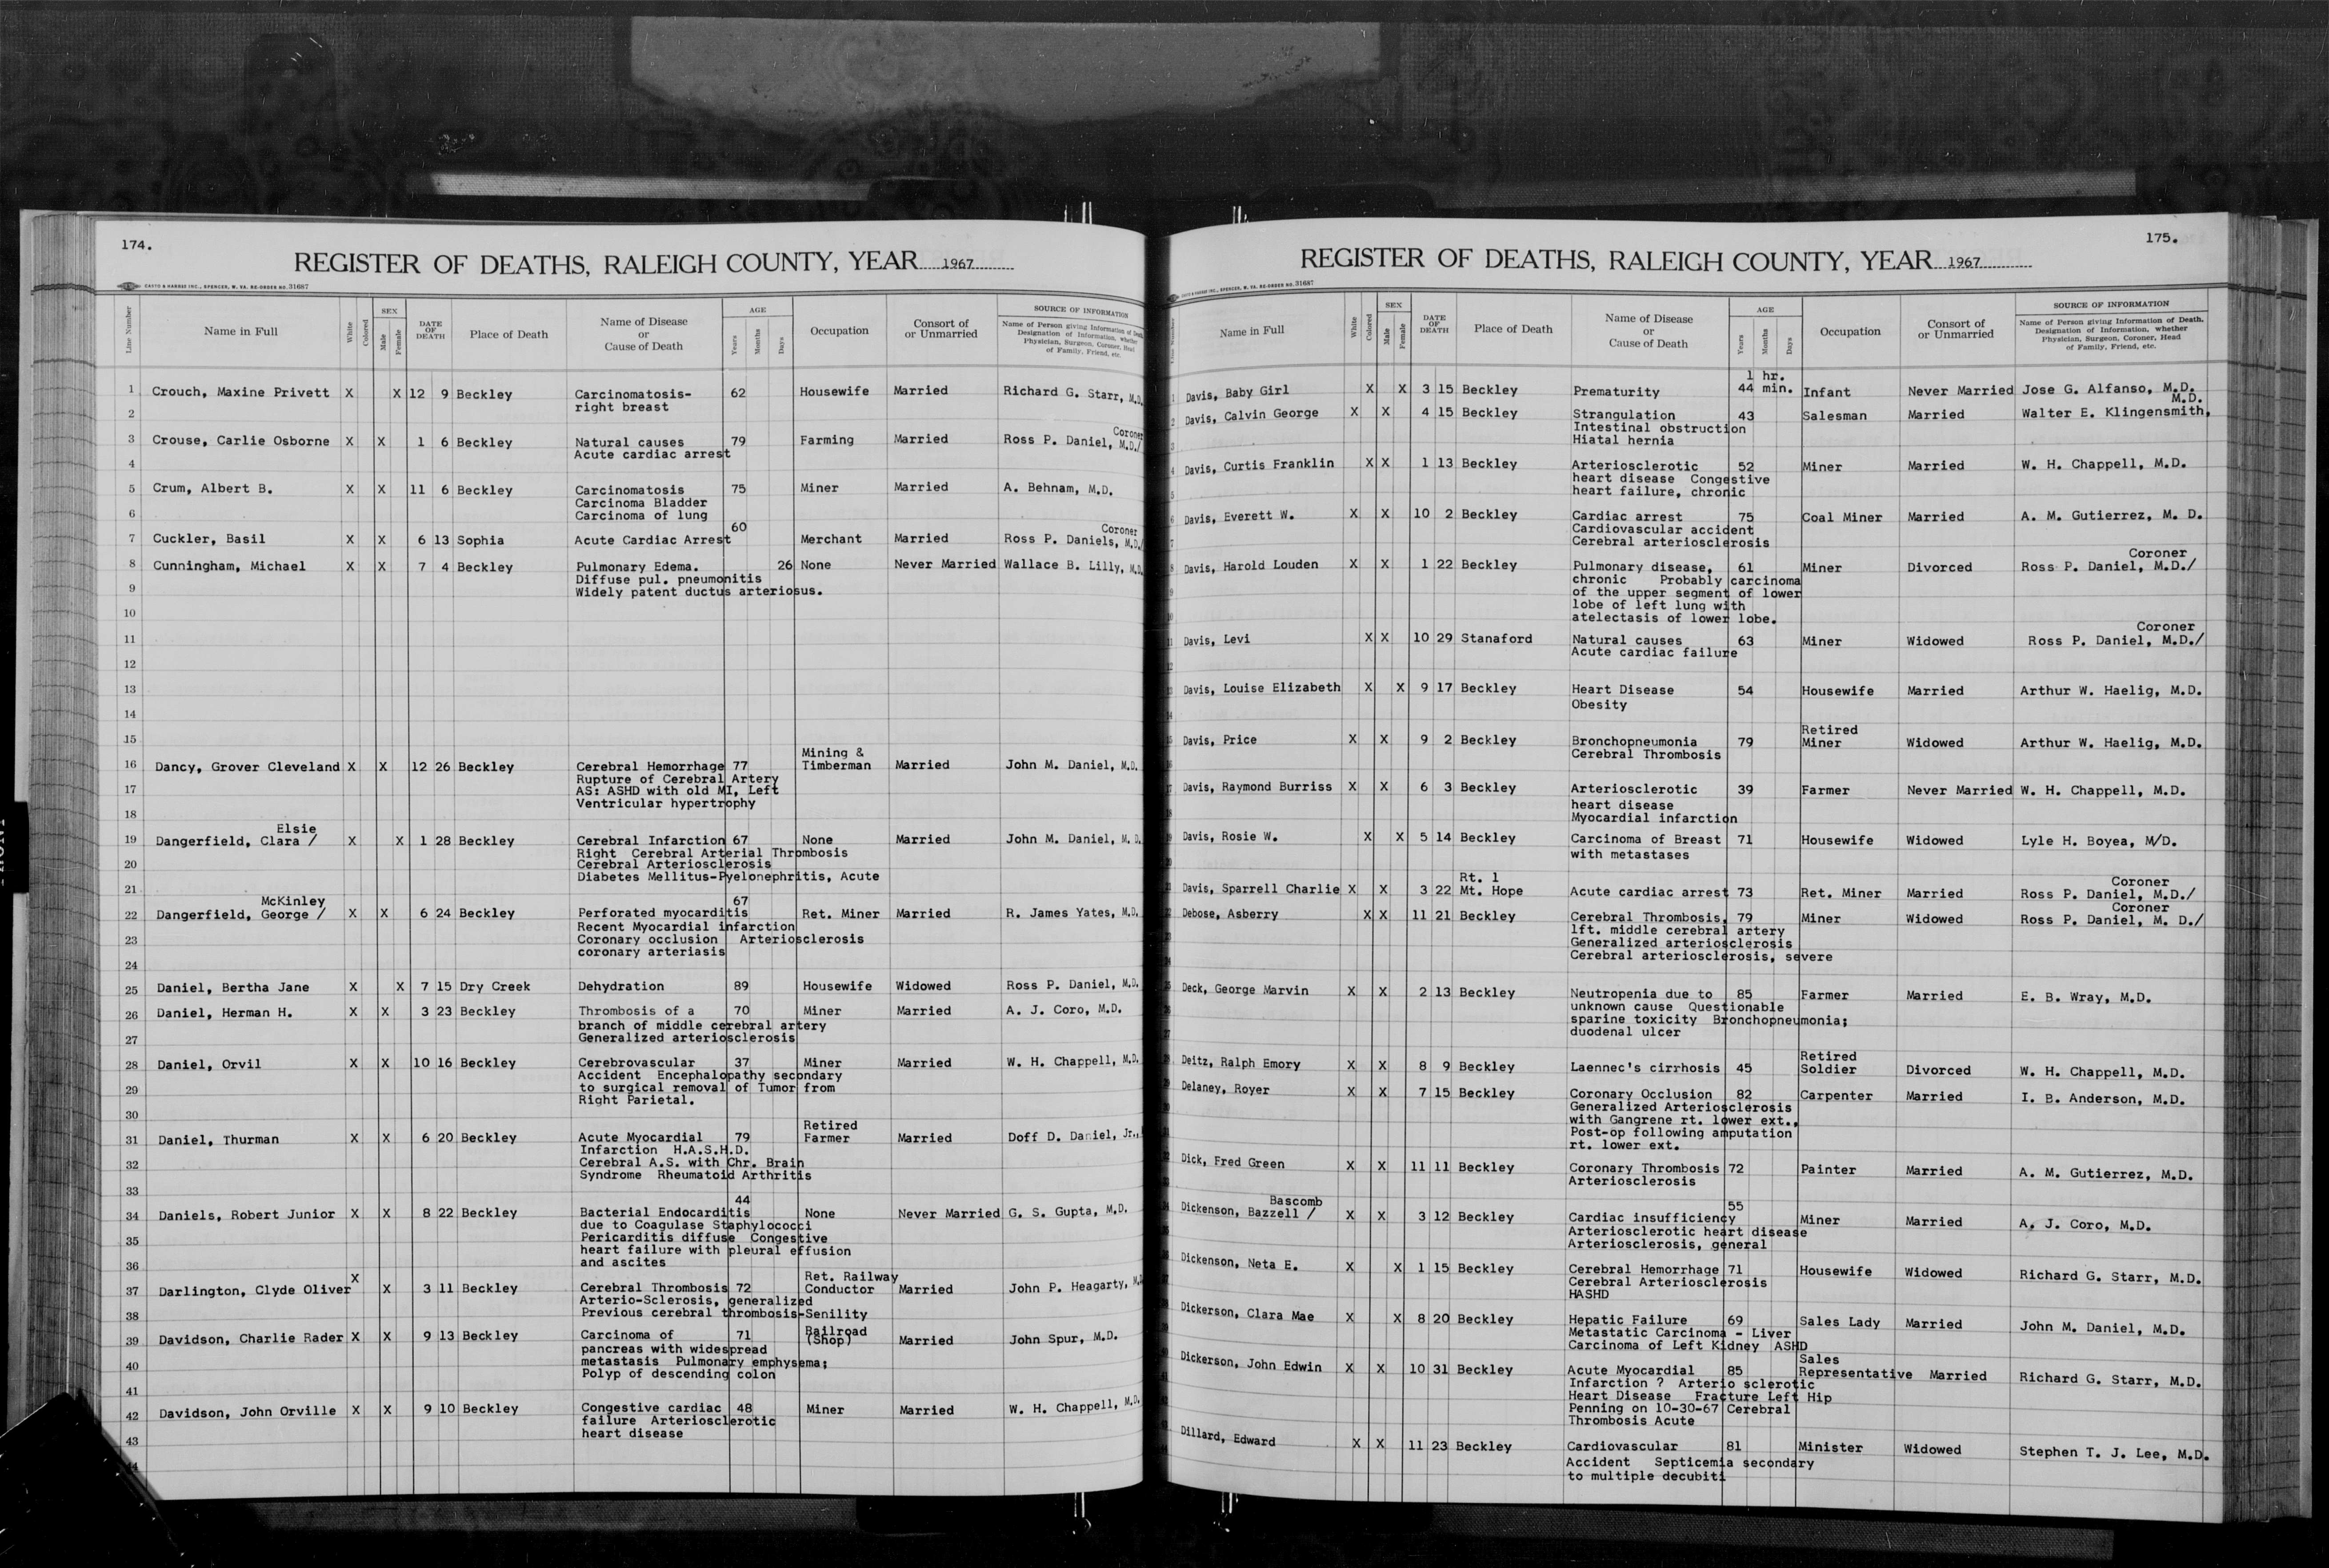 174.
REGISTER OF DEATHS, RALEIGH COUNTY, YEAR 1967
CASTO & HARRIS INC., SPENCER, W. VA. RE-ORDER NO. 31687
Line Number Name in Full White Colored SEX Male Female DATE OF DEATH Place of Death Name of Disease or Cause of Death AGE Years Months Days Occupation Consort of or Unmarried SOURCE OF INFORMATION
Name of Person giving Information of Death, Designation of Information, whether Physician, Surgeon, Coroner, Head of Family, Friend, etc.
1 Crouch, Maxine Privett X X 12 9 Beckley Carcinomatosis- 62 Housewife Married Richard G. Starr, M.D.
right breast
2
Coroner
3 Crouse, Carlie Osborne X X 1 6 Beckley Natural causes 79 Farming Married Ross P. Daniel, M.D./
Acute cardiac arrest
4
5 Crum, Albert B. X X 11 6 Beckley Carcinomatosis 75 Miner Married A. Behnam, M.D.
Carcinoma Bladder
6 Carcinoma of lung
60 Coroner
7 Cuckler, Basil X X 6 13 Sophia Acute Cardiac Arrest Merchant Married Ross P. Daniels, M.D./
8 Cunningham, Michael X X 7 4 Beckley Pulmonary Edema. 26 None Never Married Wallace B. Lilly, M.D.
Diffuse pul. pneumonitis
9 Widely patent ductus arteriosus.
10
11
12
13
14
15
Mining &
16 Dancy, Grover Cleveland X X 12 26 Beckley Cerebral Hemorrhage 77 Timberman Married John M. Daniel, M.D.
Rupture of Cerebral Artery
17 AS: ASHD with old MI, Left
Ventricular hypertrophy
18
Elsie
19 Dangerfield, Clara / X X 1 28 Beckley Cerebral Infarction 67 None Married John M. Daniel, M.D.
Right Cerebral Arterial Thrombosis
20 Cerebral Arteriosclerosis
Diabetes Mellitus-Pyelonephritis, Acute
21
McKinley 67
22 Dangerfield, George / X X 6 24 Beckley Perforated myocarditis Ret. Miner Married R. James Yates, M.D.
Recent Myocardial infarction
23 Coronary occlusion Arteriosclerosis
coronary arteriasis
24
25 Daniel, Bertha Jane X X 7 15 Dry Creek Dehydration 89 Housewife Widowed Ross P. Daniel, M.D.
26 Daniel, Herman H. X X 3 23 Beckley Thrombosis of a 70 Miner Married A. J. Coro, M.D.
branch of middle cerebral artery
27 Generalized arteriosclerosis
28 Daniel, Orvil X X 10 16 Beckley Cerebrovascular 37 Miner Married W. H. Chappell, M.D.
Accident Encephalopathy secondary
29 to surgical removal of Tumor from
Right Parietal.
30
Retired
31 Daniel, Thurman X X 6 20 Beckley Acute Myocardial 79 Farmer Married Doff D. Daniel, Jr.,
Infarction H.A.S.H.D.
32 Cerebral A.S. with Chr. Brain
Syndrome Rheumatoid Arthritis
33
44
34 Daniels, Robert Junior X X 8 22 Beckley Bacterial Endocarditis None Never Married G. S. Gupta, M.D.
due to Coagulase Staphylococci
35 Pericarditis diffuse Congestive
heart failure with pleural effusion
36 and ascites
X Ret. Railway
37 Darlington, Clyde Oliver X 3 11 Beckley Cerebral Thrombosis 72 Conductor Married John P. Heagarty, M.D.
Arterio-Sclerosis, generalized
38 Previous cerebral thrombosis-Senility
Railroad
39 Davidson, Charlie Rader X X 9 13 Beckley Carcinoma of 71 (Shop) Married John Spur, M.D.
pancreas with widespread
40 metastasis Pulmonary emphysema;
Polyp of descending colon
41
42 Davidson, John Orville X X 9 10 Beckley Congestive cardiac 48 Miner Married W. H. Chappell, M.D.
failure Arteriosclerotic
43 heart disease
44
175.
REGISTER OF DEATHS, RALEIGH COUNTY, YEAR 1967
CASTO & HARRIS INC., SPENCER, W. VA. RE-ORDER NO. 31687
Name in Full White Colored SEX Male Female DATE OF DEATH Place of Death Name of Disease or Cause of Death AGE Years Months Days Occupation Consort of or Unmarried SOURCE OF INFORMATION
Name of Person giving Information of Death, Designation of Information, whether Physician, Surgeon, Coroner, Head of Family, Friend, etc.
1 hr.
Davis, Baby Girl X X 3 15 Beckley Prematurity 44 min. Infant Never Married Jose G. Alfanso, M.D.
M.D.
Davis, Calvin George X X 4 15 Beckley Strangulation 43 Salesman Married Walter E. Klingensmith,
Intestinal obstruction
Hiatal hernia
Davis, Curtis Franklin X X 1 13 Beckley Arteriosclerotic 52 Miner Married W. H. Chappell, M.D.
heart disease Congestive
heart failure, chronic
Davis, Everett W. X X 10 2 Beckley Cardiac arrest 75 Coal Miner Married A. M. Gutierrez, M. D.
Cardiovascular accident
Cerebral arteriosclerosis
Coroner
Davis, Harold Louden X X 1 22 Beckley Pulmonary disease, 61 Miner Divorced Ross P. Daniel, M.D./
chronic Probably carcinoma
of the upper segment of lower
lobe of left lung with
atelectasis of lower lobe.
Coroner
Davis, Levi X X 10 29 Stanaford Natural causes 63 Miner Widowed Ross P. Daniel, M.D./
Acute cardiac failure
Davis, Louise Elizabeth X X 9 17 Beckley Heart Disease 54 Housewife Married Arthur W. Haelig, M.D.
Obesity
Retired
Davis, Price X X 9 2 Beckley Bronchopneumonia 79 Miner Widowed Arthur W. Haelig, M.D.
Cerebral Thrombosis
Davis, Raymond Burriss X X 6 3 Beckley Arteriosclerotic 39 Farmer Never Married W. H. Chappell, M.D.
heart disease
Myocardial infarction
Davis, Rosie W. X X 5 14 Beckley Carcinoma of Breast 71 Housewife Widowed Lyle H. Boyea, M/D.
with metastases
Rt. 1 Coroner
Davis, Sparrell Charlie X X 3 22 Mt. Hope Acute cardiac arrest 73 Ret. Miner Married Ross P. Daniel, M.D./
Coroner
Debose, Asberry X X 11 21 Beckley Cerebral Thrombosis, 79 Miner Widowed Ross P. Daniel, M. D./
lft. middle cerebral artery
Generalized arteriosclerosis
Cerebral arteriosclerosis, severe
Deck, George Marvin X X 2 13 Beckley Neutropenia due to 85 Farmer Married E. B. Wray, M.D.
unknown cause Questionable
sparine toxicity Bronchopneumonia;
duodenal ulcer
Retired
Deitz, Ralph Emory X X 8 9 Beckley Laennec's cirrhosis 45 Soldier Divorced W. H. Chappell, M.D.
Delaney, Royer X X 7 15 Beckley Coronary Occlusion 82 Carpenter Married I. B. Anderson, M.D.
Generalized Arteriosclerosis
with Gangrene rt. lower ext.,
Post-op following amputation
rt. lower ext.
Dick, Fred Green X X 11 11 Beckley Coronary Thrombosis 72 Painter Married A. M. Gutierrez, M.D.
Arteriosclerosis
Bascomb 55
Dickenson, Bazzell / X X 3 12 Beckley Cardiac insufficiency Miner Married A. J. Coro, M.D.
Arteriosclerotic heart disease
Arteriosclerosis, general
Dickenson, Neta E. X X 1 15 Beckley Cerebral Hemorrhage 71 Housewife Widowed Richard G. Starr, M.D.
Cerebral Arteriosclerosis
HASHD
Dickerson, Clara Mae X X 8 20 Beckley Hepatic Failure 69 Sales Lady Married John M. Daniel, M.D.
Metastatic Carcinoma - Liver
Carcinoma of Left Kidney ASHD
Sales
Dickerson, John Edwin X X 10 31 Beckley Acute Myocardial 85 Representative Married Richard G. Starr, M.D.
Infarction ? Arterio sclerotic
Heart Disease Fracture Left Hip
Penning on 10-30-67 Cerebral
Thrombosis Acute
Dillard, Edward X X 11 23 Beckley Cardiovascular 81 Minister Widowed Stephen T. J. Lee, M.D.
Accident Septicemia secondary
to multiple decubiti